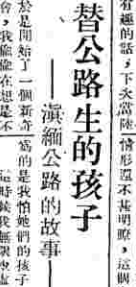 有趣的話，下次當陸情形還不甚明瞭，這個
替公路生的孩子
—滇緬公路的故事—
於是開始了一個新奇
會，我偷偷在想是不
的是我怕她們的孩子
這時候我無限